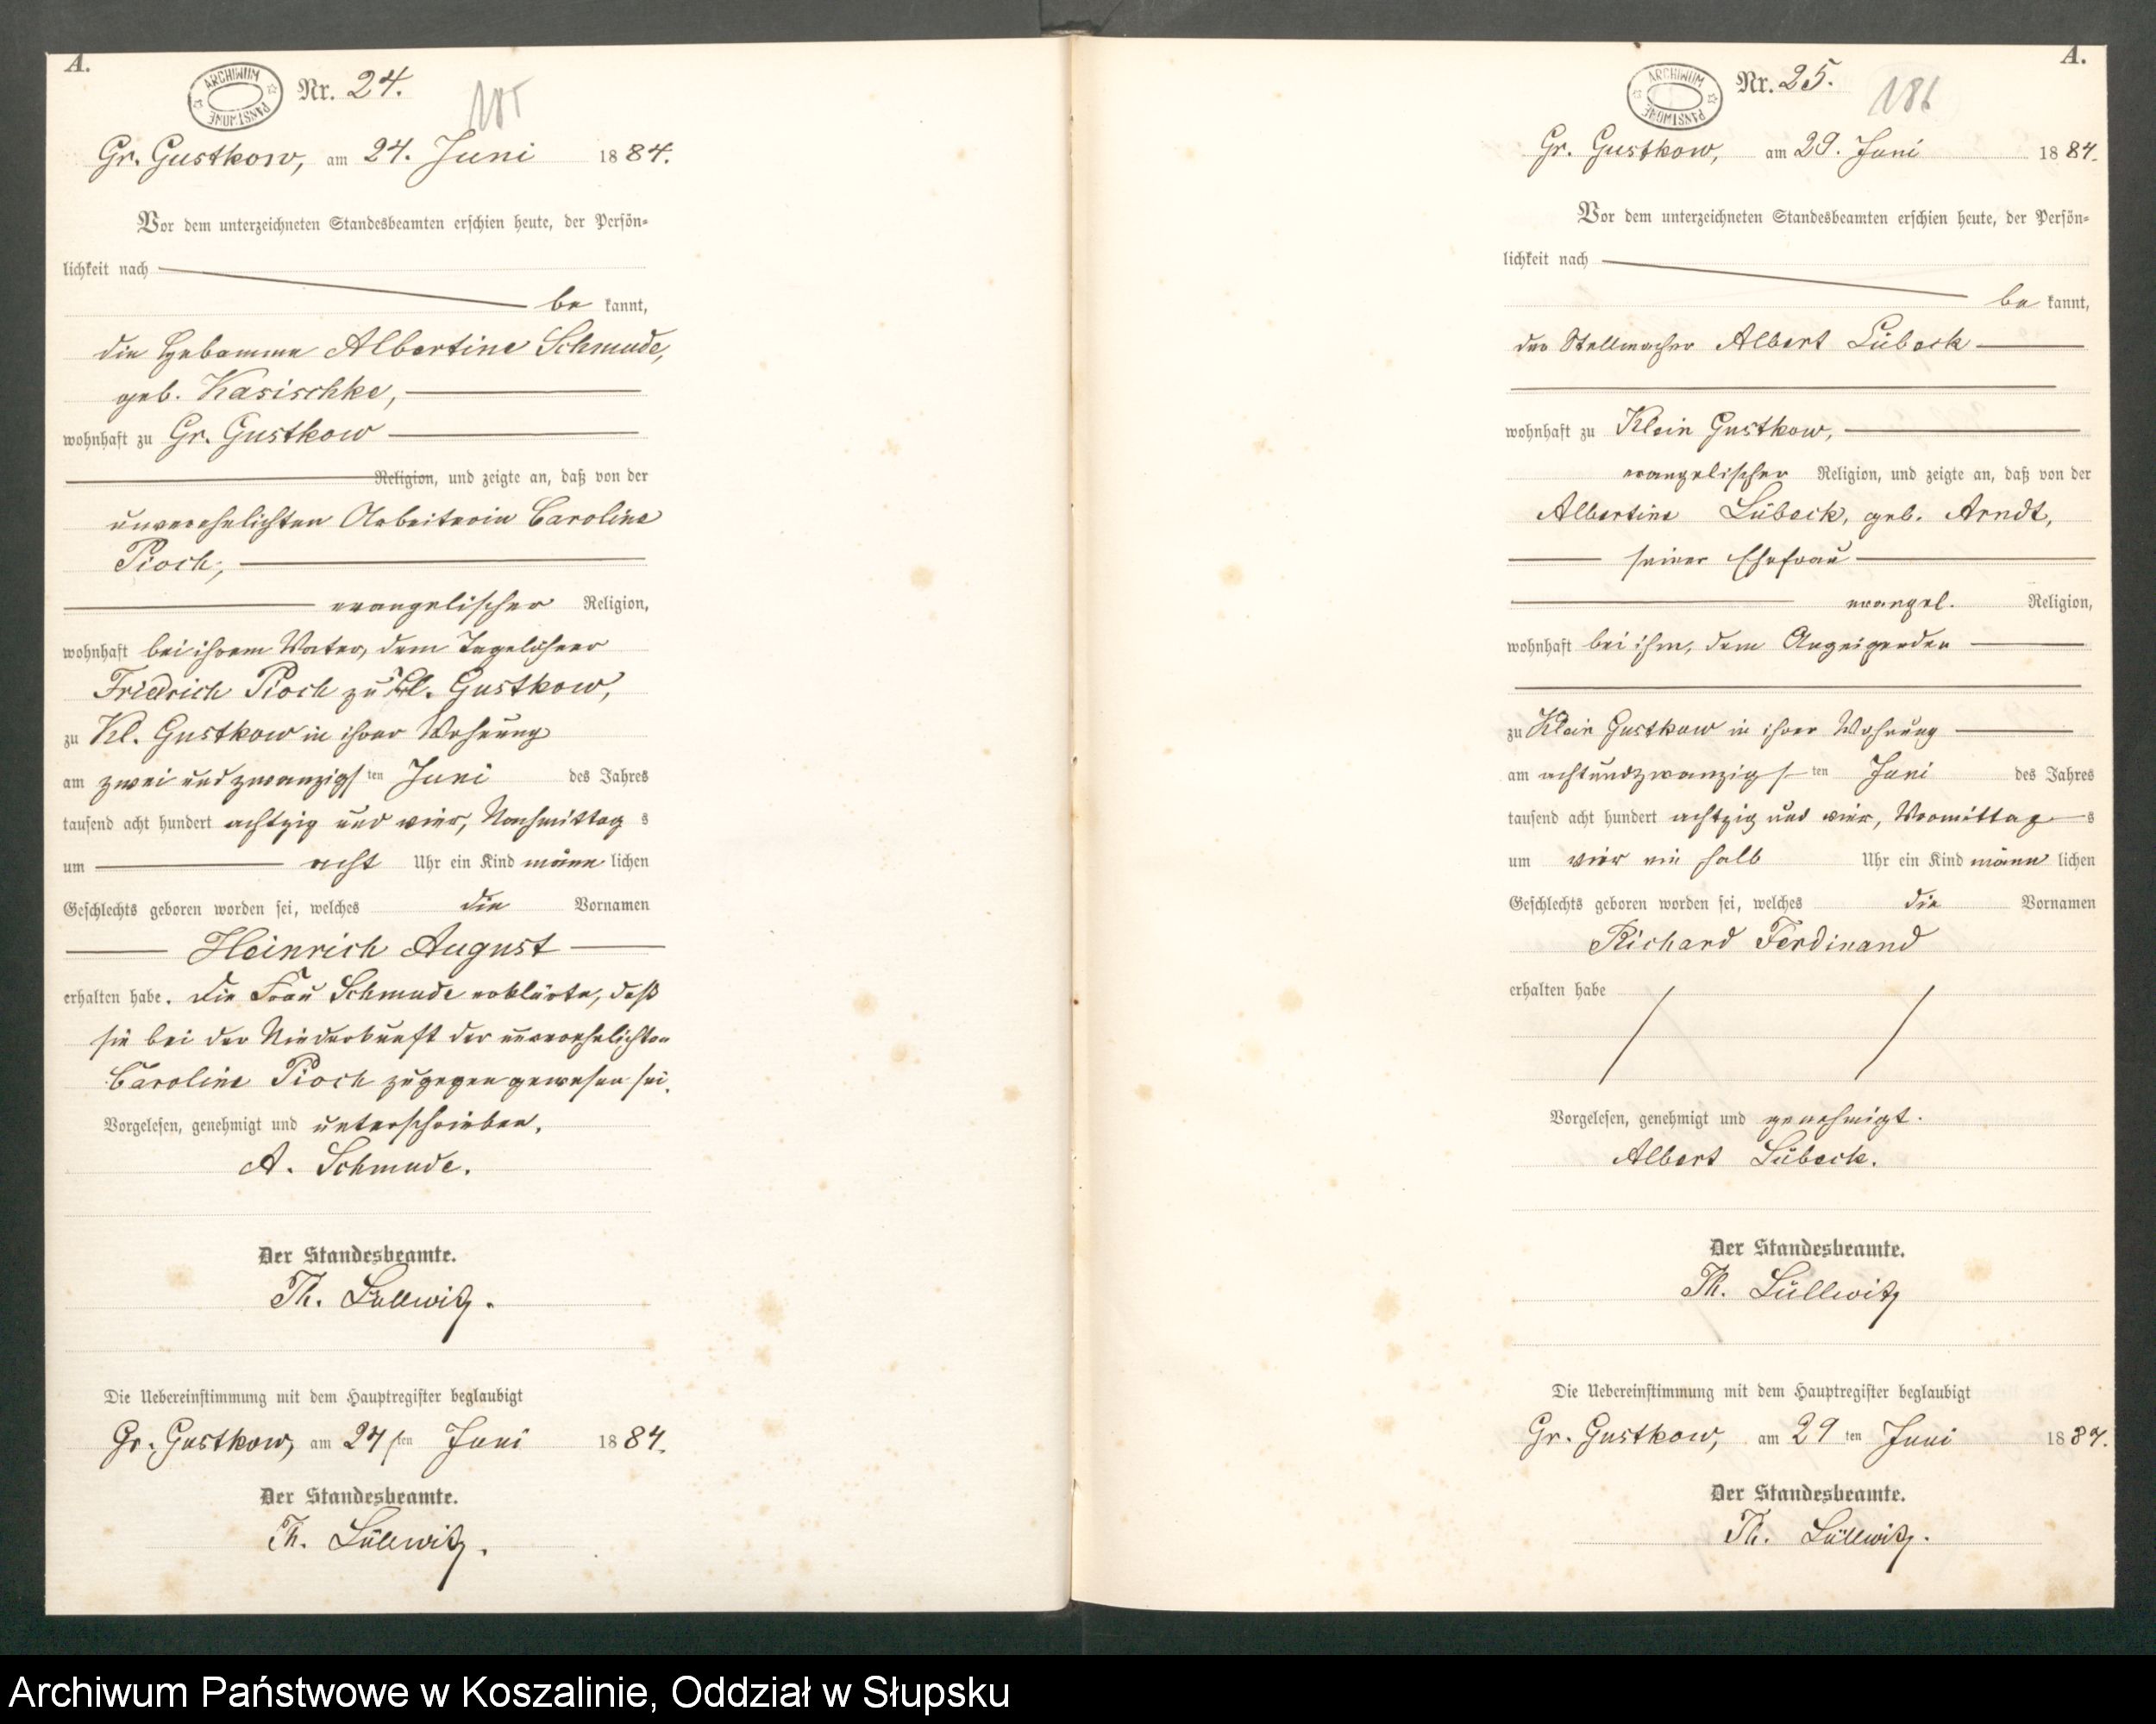 A.
ARCHIWUM PAŃSTWOWE
Nr. 24.
185
Gr. Gustkow, am 24. Juni 1884.
Vor dem unterzeichneten Standesbeamten erschien heute, der Persön-
lichkeit nach
be kannt,
die Hebamme Albertine Schmude,
geb. Kasischke,
wohnhaft zu Gr. Gustkow
Religion, und zeigte an, daß von der
unverehelichten Arbeiterin Caroline
Pioch,
evangelischer Religion,
wohnhaft bei ihrem Vater, dem Tagelöhner
Friedrich Pioch zu Kl. Gustkow,
zu Kl. Gustkow in ihrer Wohnung
am zwei und zwanzigsten Juni des Jahres
tausend acht hundert achtzig und vier, Nachmittags
um acht Uhr ein Kind männlichen
Geschlechts geboren worden sei, welches die Vornamen
Heinrich August
erhalten habe. Die Frau Schmude erklärte, daß
sie bei der Niederkunft der unverehelichten
Caroline Pioch zugegen gewesen sei.
Vorgelesen, genehmigt und unterschrieben.
A. Schmude.
Der Standesbeamte.
Th. Lüllwitz.
Die Uebereinstimmung mit dem Hauptregister beglaubigt
Gr. Gustkow, am 24sten Juni 1884.
Der Standesbeamte.
Th. Lüllwitz.
A.
ARCHIWUM PAŃSTWOWE
Nr. 25.
186
Gr. Gustkow, am 29. Juni 1884.
Vor dem unterzeichneten Standesbeamten erschien heute, der Persön-
lichkeit nach
be kannt,
der Stellmacher Albert Lübeck
wohnhaft zu Klein Gustkow,
evangelischer Religion, und zeigte an, daß von der
Albertine Lübeck, geb. Arndt,
seiner Ehefrau
evangel. Religion,
wohnhaft bei ihm, dem Anzeigenden
zu Klein Gustkow in ihrer Wohnung
am achtundzwanzigsten Juni des Jahres
tausend acht hundert achtzig und vier, Vormittags
um vier ein halb Uhr ein Kind männlichen
Geschlechts geboren worden sei, welches die Vornamen
Richard Ferdinand
erhalten habe
Vorgelesen, genehmigt und genehmigt.
Albert Lübeck.
Der Standesbeamte.
Th. Lüllwitz
Die Uebereinstimmung mit dem Hauptregister beglaubigt
Gr. Gustkow, am 29ten Juni 1884.
Der Standesbeamte.
Th. Lüllwitz.
Archiwum Państwowe w Koszalinie, Oddział w Słupsku